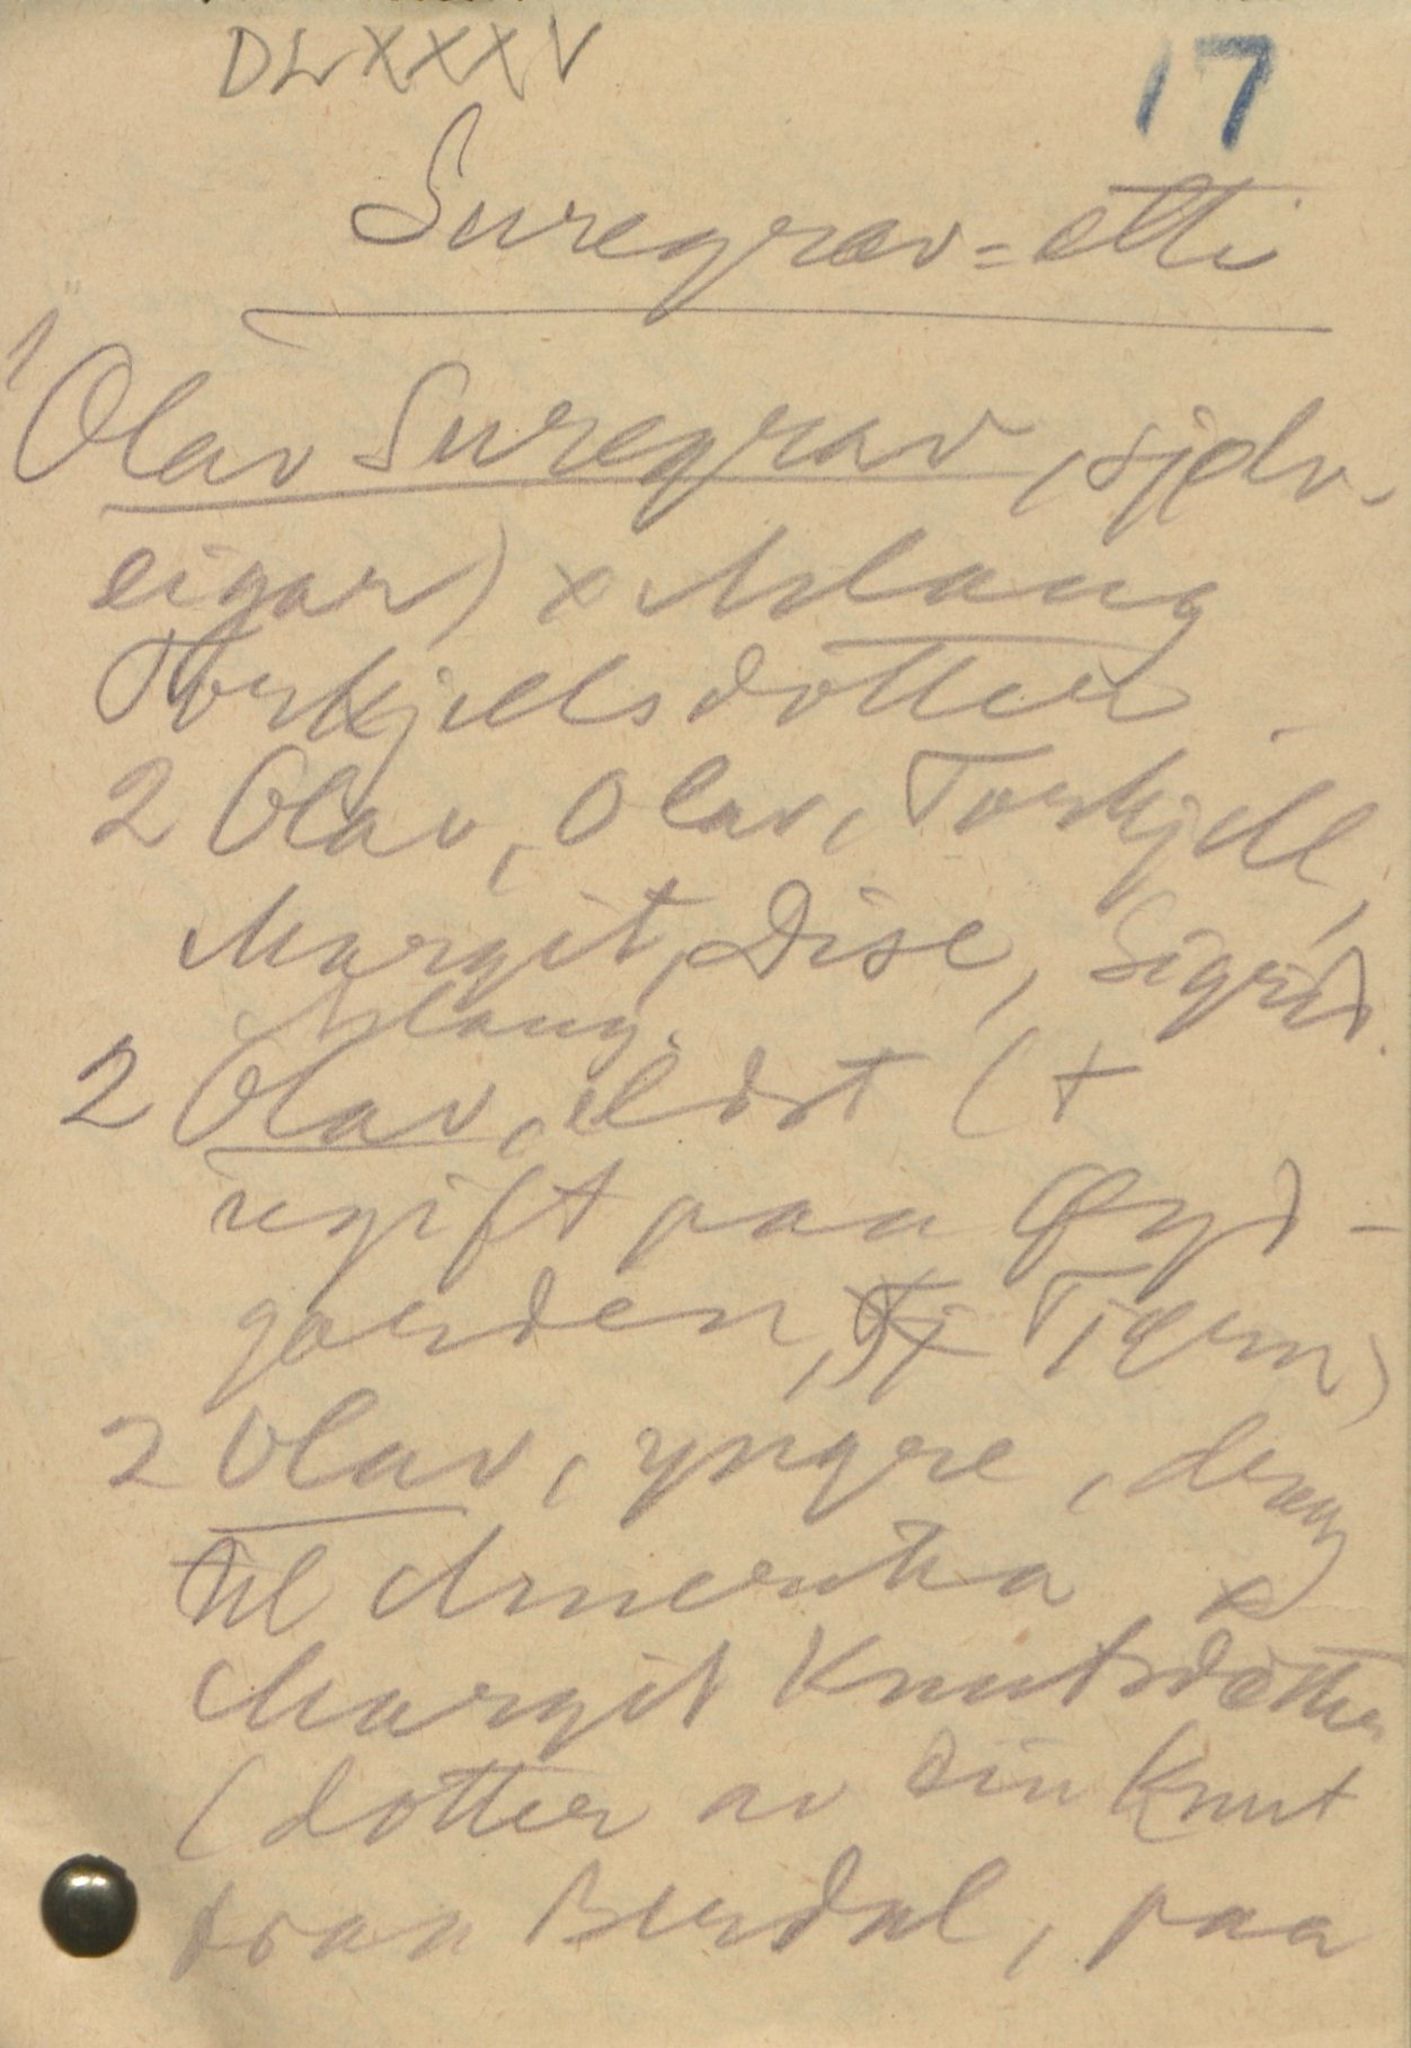 DLXXXV
17
Suregrav=ætti
1 Olav Suregrav, sjølv-
eigar) x Aslaug
Torkjellsdotter.
2 Olav, Olav, Torkjell,
Margit, Dise, Sigrid.
Aslaug.
2 Olav, eldst (+
ugift paa Øygarden
garden, Tjønn)
2 Olav, yngre, drog
til Amerika x
Margit Knutsdotter
(dotter av ein Knut
fraa Berdal, paa